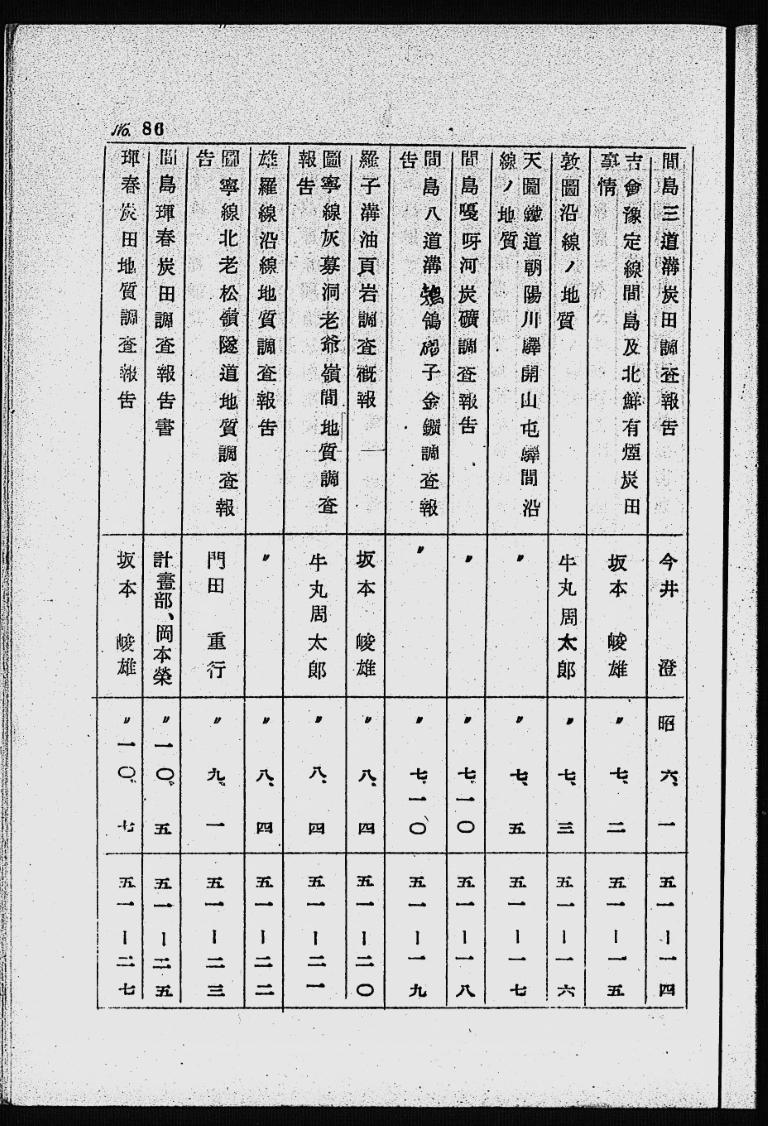 No. 86
間島三道溝炭田調査報告 今井 澄 昭 六、一 五一ー一四
吉會豫定線間島及北鮮有煙炭田
事情 坂本 峻雄 〃 七、二 五一ー一五
敦圖沿線ノ地質 牛丸周太郎 〃 七、三 五一ー一六
天圖鐵道朝陽川驛開山屯驛間沿
線ノ地質 〃 〃 七、五 五一ー一七
間島嘎呀河炭礦調査報告 〃 〃 七、一〇 五一ー一八
間島八道溝 鴿 子金鑛調査報
告 〃 〃 七、一〇 五一ー一九
羅子溝油頁岩調査概報 坂本 峻雄 〃 八、四 五一ー二〇
圖寧線灰募洞老爺嶺間地質調査
報告 牛丸周太郎 〃 八、四 五一ー二一
雄羅線沿線地質調査報告 〃 〃 八、四 五一ー二二
圖寧線北老松嶺隧道地質調査報
告 門田 重行 〃 九、一 五一ー二三
間島琿春炭田調査報告書 計畫部、岡本榮 〃 一〇、五 五一ー二五
琿春炭田地質調査報告 坂本 峻雄 〃 一〇、七 五一ー二七